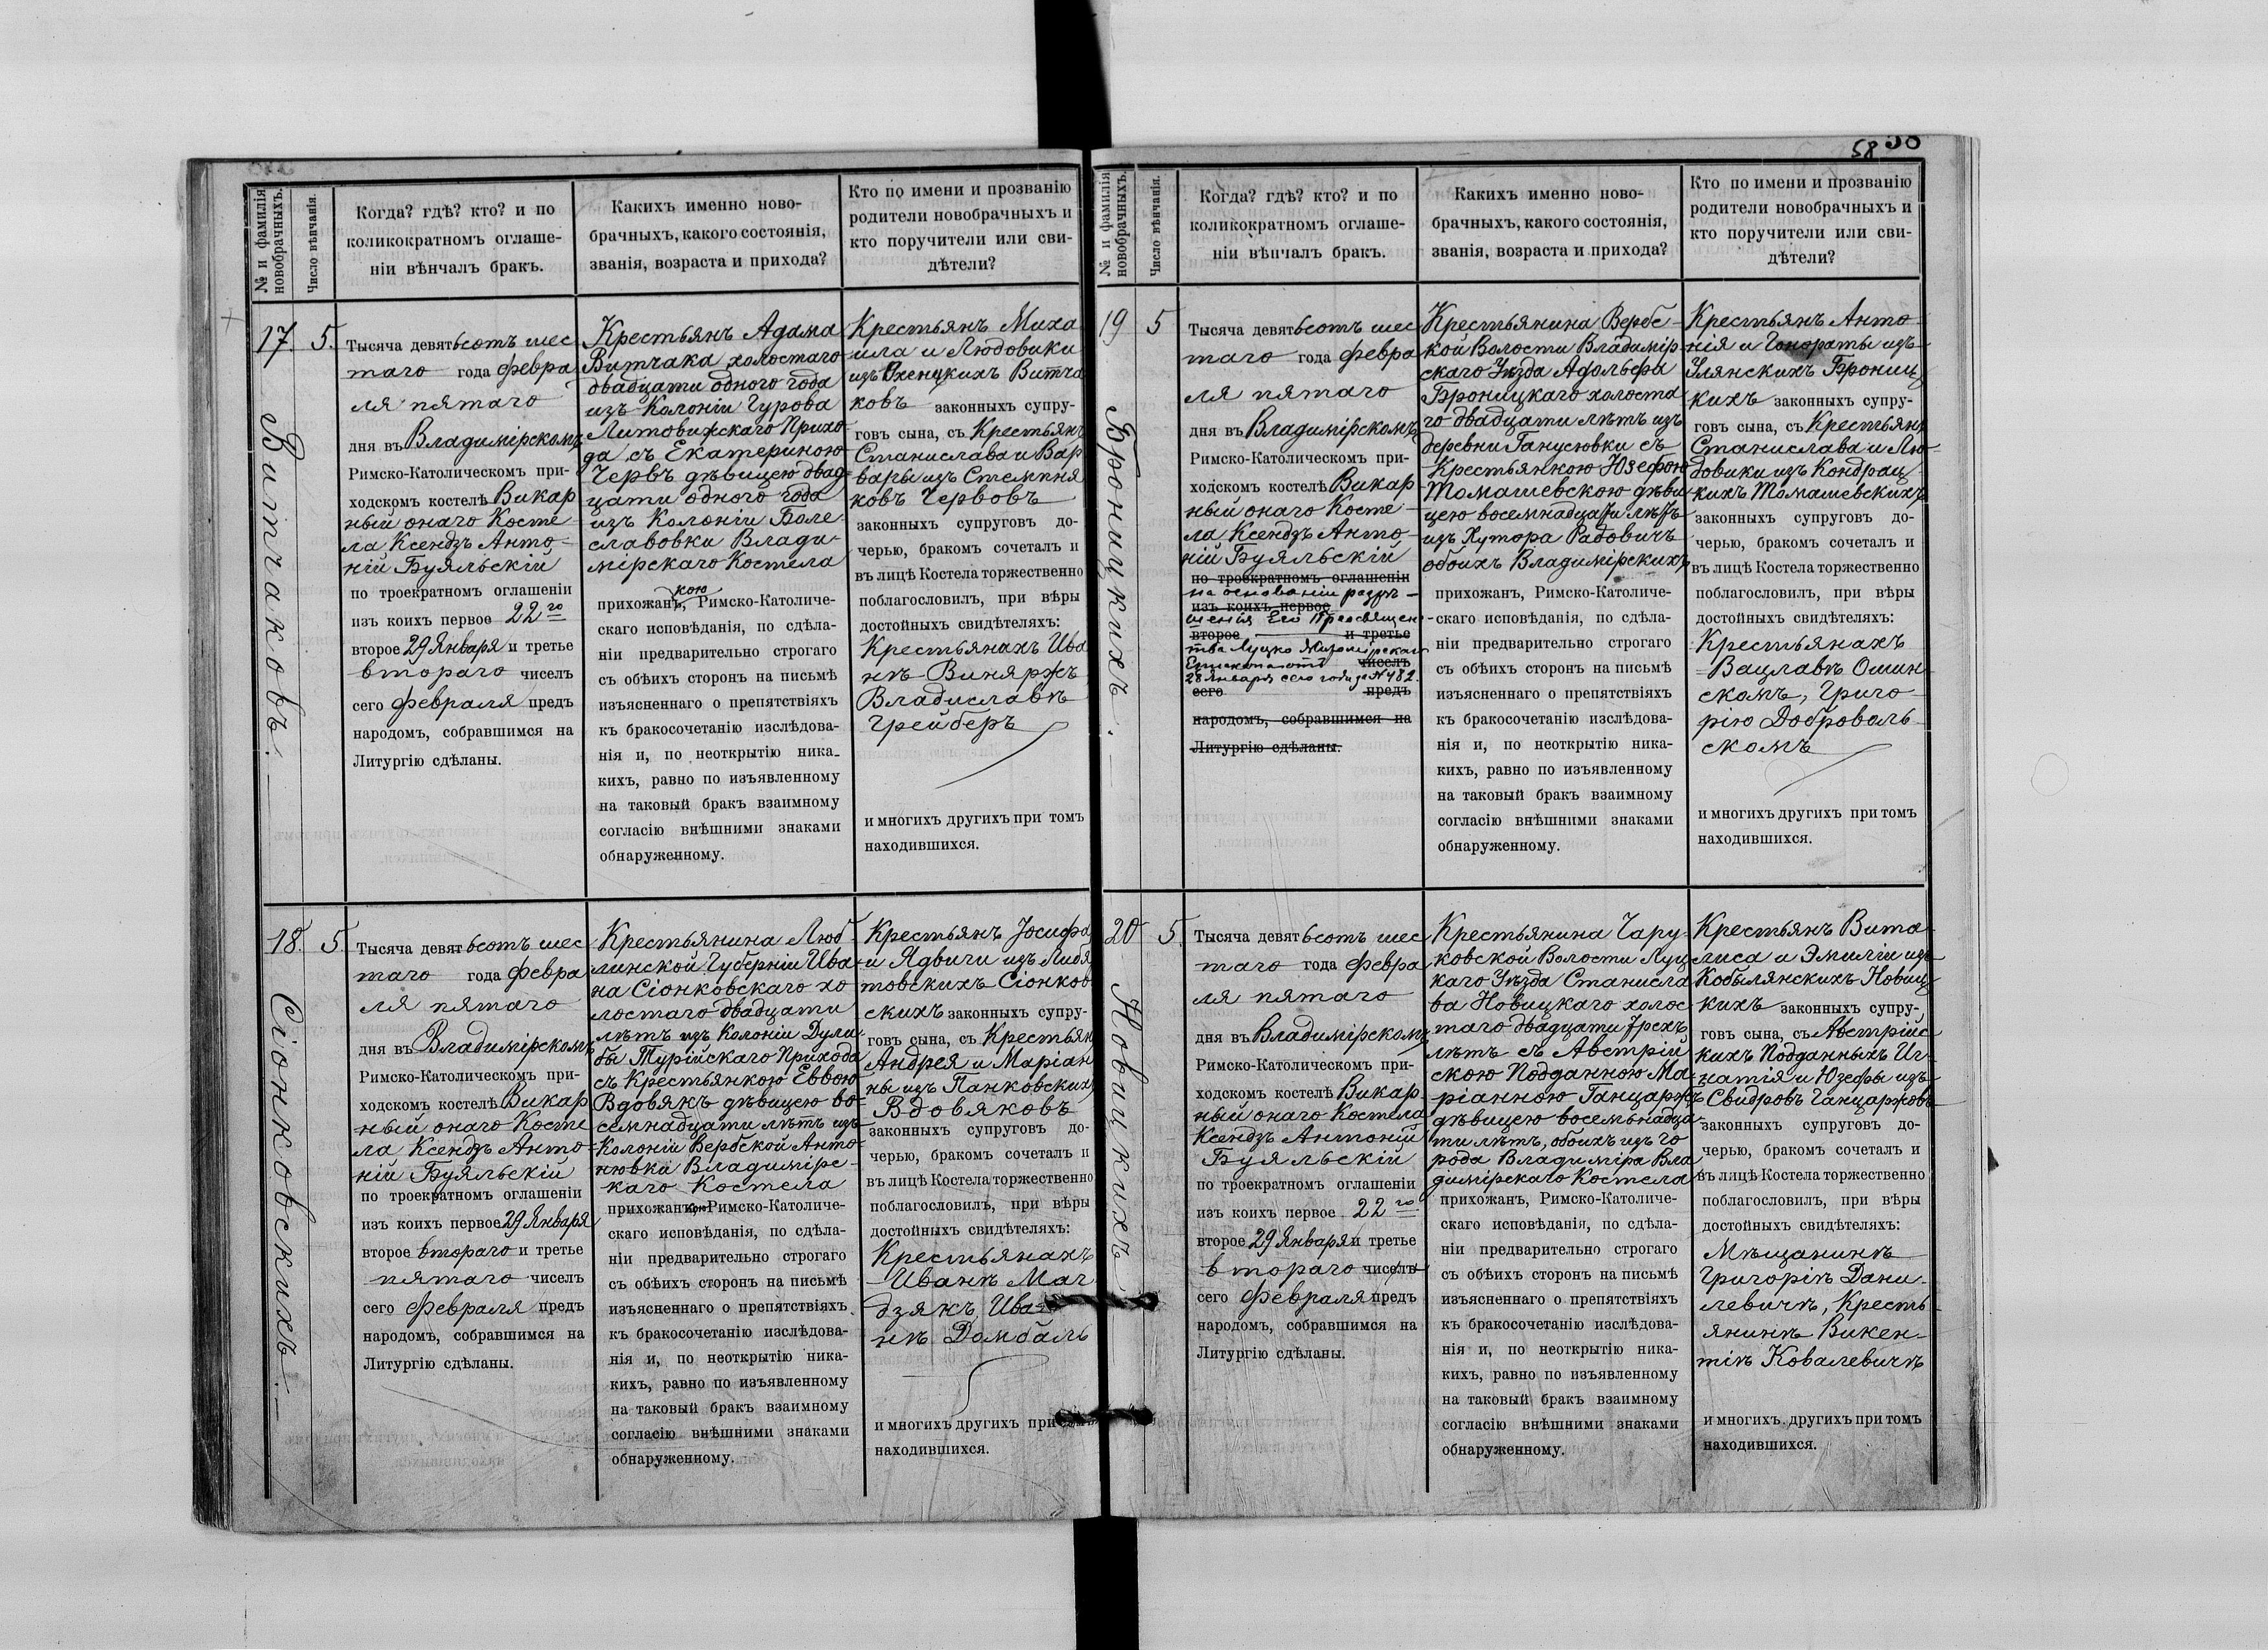 58 58
№ и фамилія новобрачныхъ.
Число вѣнчанія.
Когда? гдѣ? кто? и по
коликократномъ оглаше-
ніи вѣнчалъ бракъ.
Какихъ именно ново-
брачныхъ, какого состоянія,
званія, возраста и прихода?
Кто по имени и прозванію
родители новобрачныхъ и
кто поручители или сви-
дѣтели?
17.
Витчаковъ.
5.
Тысяча девятьсотъ шес
таго года февра
ля пятаго
дня въ Владимірскомъ
Римско-Католическомъ при-
ходскомъ костелѣ Викар
ный онаго Косте
ла Ксендзъ Анто-
ній Буяльскій
по троекратномъ оглашеніи
изъ коихъ первое 22го
второе 29 Января и третье
втораго чиселъ
сего февраля предъ
народомъ, собравшимся на
Литургію сдѣланы.
Крестьянъ Адама
Витчака холостаго
двадцати одного года
изъ Колоніи Гурова
Литовижскаго Прихо-
да, съ Екатериною
Червъ дѣвицею двад-
цати одного года
изъ Колоніи Боле-
славовки Влади-
мірскаго Костела
кою
прихожанъ, Римско-Католиче-
скаго исповѣданія, по сдѣла-
ніи предварительно строгаго
съ обѣихъ сторонъ на письмѣ
изъясненнаго о препятствіяхъ
къ бракосочетанію изслѣдова-
нія и, по неоткрытію ника-
кихъ, равно по изъявленному
на таковый бракъ взаимному
согласію внѣшними знаками
обнаруженному.
Крестьянъ Миха
ила и Людовики
изъ Витча
ковъ законныхъ супру-
говъ сына, съ Крестьянъ
Станислава и Вар
вары изъ Стемпня
ковъ Червовъ
законныхъ супруговъ до-
черью, бракомъ сочеталъ и
въ лицѣ Костела торжественно
поблагословилъ, при вѣры
достойныхъ свидѣтеляхъ:
Крестьянахъ Ива
нѣ Виняржъ
Владиславѣ
Грейберъ
и многихъ другихъ при томъ
находившихся.
18.
Сіонковскихъ.
5.
Тысяча девятьсотъ шес
таго года февра
ля пятаго
дня въ Владимірскомъ
Римско-Католическомъ при-
ходскомъ костелѣ Викар
ный онаго Косте
ла Ксендзъ Анто-
ній Буяльскій
по троекратномъ оглашеніи
изъ коихъ первое 29 Января
второе втораго и третье
пятаго чиселъ
сего февраля предъ
народомъ, собравшимся на
Литургію сдѣланы.
Крестьянина Люб-
линской Губерніи Ива-
на Сіонковскаго хо
лостаго двадцати
лѣтъ изъ Колоніи Дули-
бы Турійскаго Прихода
съ Крестьянкою Еввою
Вдовякъ дѣвицею во-
семнадцати лѣтъ изъ
Колоніи Вербской Анто-
новки Владимірс-
каго Костела
прихожанъ, Римско-Католиче-
скаго исповѣданія, по сдѣла-
ніи предварительно строгаго
съ обѣихъ сторонъ на письмѣ
изъясненнаго о препятствіяхъ
къ бракосочетанію изслѣдова-
нія и, по неоткрытію ника-
кихъ, равно по изъявленному
на таковый бракъ взаимному
согласію внѣшними знаками
обнаруженному.
Крестьянъ Іосифа
и Ядвиги изъ Либя
товскихъ Сіонков
скихъ законныхъ супру-
говъ сына, съ Крестьян
Андрея и Маріан
ны изъ Панковскихъ
Вдовяковъ
законныхъ супруговъ до-
черью, бракомъ сочеталъ и
въ лицѣ Костела торжественно
поблагословилъ, при вѣры
достойныхъ свидѣтеляхъ:
Крестьянахъ
Иванѣ Маг
дзякъ, Ива-
нѣ Домбаль
и многихъ другихъ при томъ
находившихся.
№ и фамилія новобрачныхъ.
Число вѣнчанія.
Когда? гдѣ? кто? и по
коликократномъ оглаше-
ніи вѣнчалъ бракъ.
Какихъ именно ново-
брачныхъ, какого состоянія,
званія, возраста и прихода?
Кто по имени и прозванію
родители новобрачныхъ и
кто поручители или сви-
дѣтели?
19
Броницкихъ.
5
Тысяча девятьсотъ шес
таго года февра
ля пятаго
дня въ Владимірскомъ
Римско-Католическомъ при-
ходскомъ костелѣ Викар
ный онаго Косте-
ла Ксендзъ Анто-
ній Буяльскій
по троекратномъ оглашеніи
на основаніи разрѣ-
изъ коихъ первое
шенія Его Преосвящен-
второе и третье
тва Луцко Житомірскаго
Епископа отъ чиселъ
28 Января сего года за № 482.
сего предъ
народомъ, собравшимся на
Литургію сдѣланы.
Крестьянина Вербс-
кой Волости Владимір-
скаго Уѣзда Адольфа
Броницкаго холоста
го двадцати лѣтъ изъ
деревни Ганусювки съ
Крестьянкою Юзефою
Томашевскою дѣви
цею восемнадцати лѣтъ
изъ Хутора Радовичъ
обоихъ Владимірскихъ
прихожанъ, Римско-Католиче-
скаго исповѣданія, по сдѣла-
ніи предварительно строгаго
съ обѣихъ сторонъ на письмѣ
изъясненнаго о препятствіяхъ
къ бракосочетанію изслѣдова-
нія и, по неоткрытію ника-
кихъ, равно по изъявленному
на таковый бракъ взаимному
согласію внѣшними знаками
обнаруженному.
Крестьянъ Анто-
нія и Гонораты изъ
Улянскихъ Брониц
кихъ законныхъ супру-
говъ сына, съ Крестьян
Станислава и Лю-
довики изъ Кондрац-
кихъ Томашевскихъ
законныхъ супруговъ до-
черью, бракомъ сочеталъ и
въ лицѣ Костела торжественно
поблагословилъ, при вѣры
достойныхъ свидѣтеляхъ:
Крестьянахъ
Вацлавѣ Омин
скомъ, Григо-
рію Доброволь-
скомъ
и многихъ другихъ при томъ
находившихся.
20
Новицкихъ
5.
Тысяча девятьсотъ шес
таго года февра
ля пятаго
дня въ Владимірскомъ
Римско-Католическомъ при-
ходскомъ костелѣ Викар
ный онаго Костела
Ксендзъ Антоній
Буяльскій
по троекратномъ оглашеніи
изъ коихъ первое 22го
второе 29 Января и третье
втораго чиселъ
сего февраля предъ
народомъ, собравшимся на
Литургію сдѣланы.
Крестьянина Чару-
ковской Волости Луц
каго Уѣзда Станисла
ва Новицкаго холос-
таго двадцати трехъ
лѣтъ съ Австрій
скою Подданною Ма-
ріанною Ганцаржъ
дѣвицею восемьнадца
ти лѣтъ, обоихъ изъ го
рода Владиміра Вла
димірскаго Костела
прихожанъ, Римско-Католиче-
скаго исповѣданія, по сдѣла-
ніи предварительно строгаго
съ обѣихъ сторонъ на письмѣ
изъясненнаго о препятствіяхъ
къ бракосочетанію изслѣдова-
нія и, по неоткрытію ника-
кихъ, равно по изъявленному
на таковый бракъ взаимному
согласію внѣшними знаками
обнаруженному.
Крестьянъ Вита-
лиса и Эмиліи изъ
Кобылянскихъ Новиц-
кихъ законныхъ супру-
говъ сына, съ Австрійс
кихъ Подданныхъ Иг-
натія и Юзефы изъ
Свидровъ Ганцаржовъ
законныхъ супруговъ до-
черью, бракомъ сочеталъ и
въ лицѣ Костела торжественно
поблагословилъ, при вѣры
достойныхъ свидѣтеляхъ:
Мѣщанинѣ
Григоріѣ Дани-
левичѣ, Кресть-
янинѣ Викен-
тіѣ Ковалевичѣ
и многихъ другихъ при томъ
находившихся.